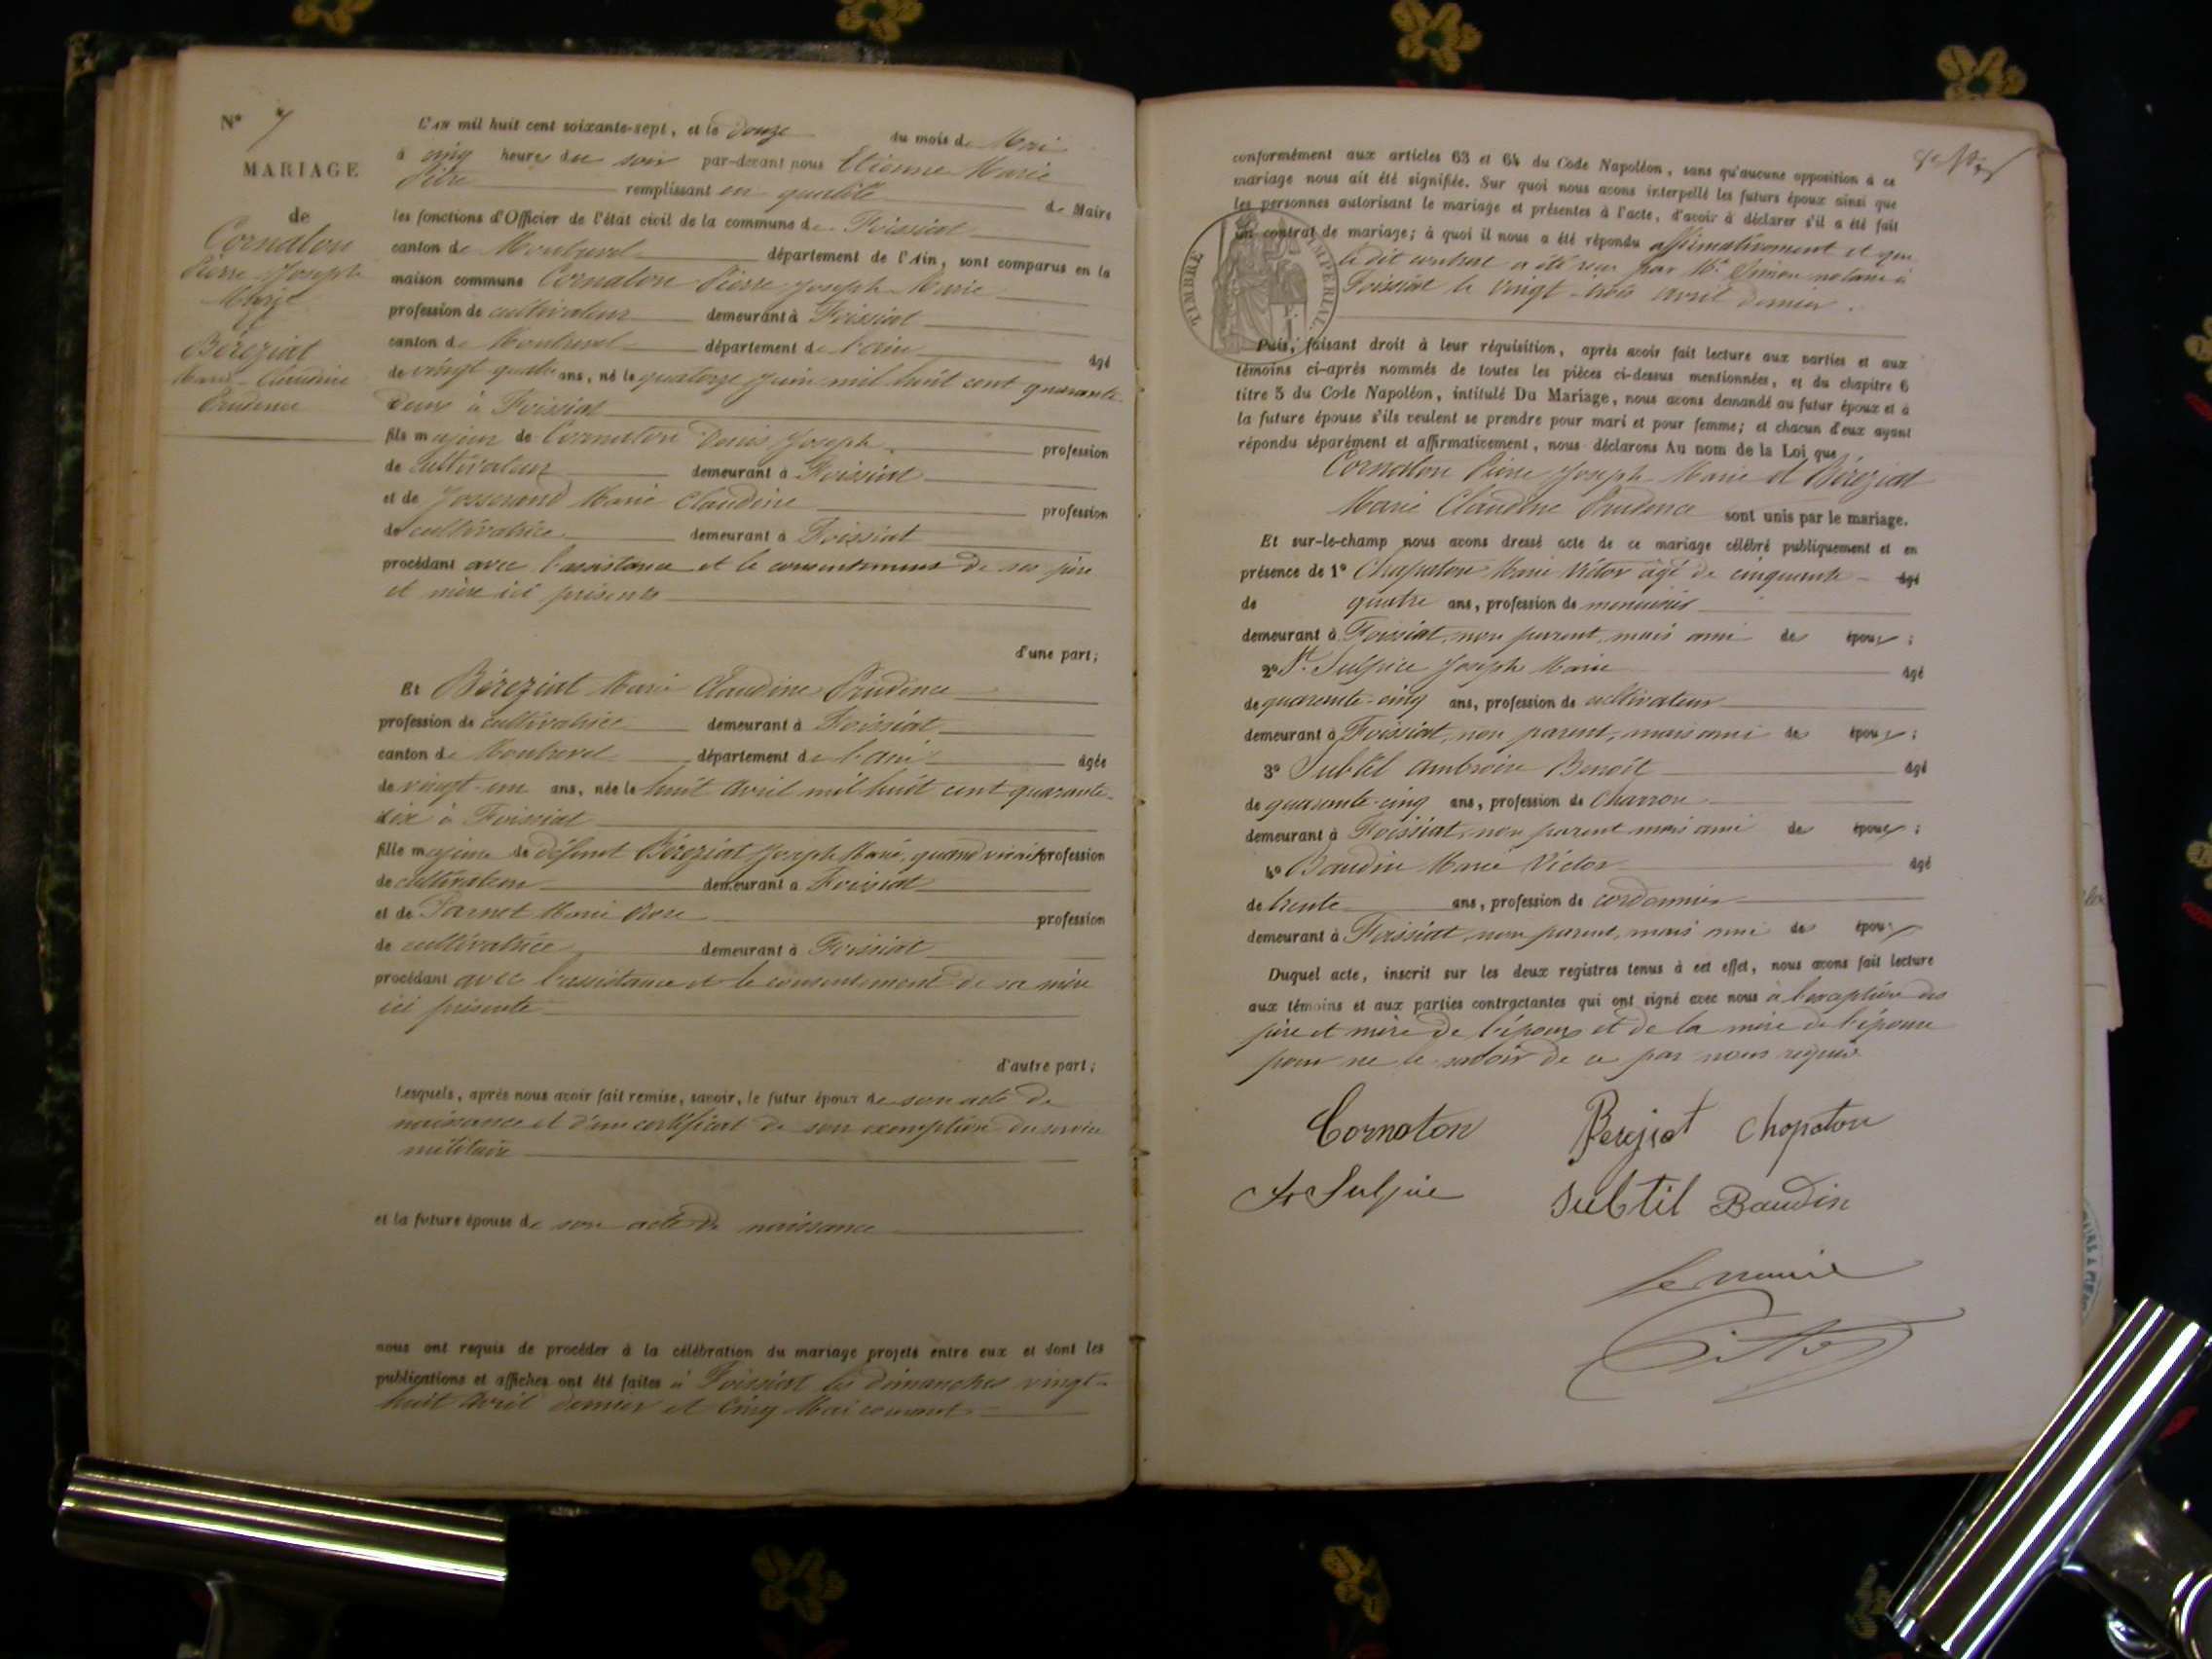 N° 7
MARIAGE
de
Cornaton
Pierre Joseph
Marie
et
Béréziat
Marie-Claudine
Prudence
L'AN mil huit cent soixante-sept, et le douze du mois de Mai
à cinq heures du soir par-devant nous Etienne Marie
Pitre remplissant en qualité de Maire
les fonctions d'Officier de l'état civil de la commune de Foissiat
canton de Montrevel département de l'Ain, sont comparus en la
maison commune Cornaton Pierre Joseph Marie
profession de cultivateur demeurant à Foissiat
canton de Montrevel département de l'ain âgé
de vingt quatre ans, né le quatorze juin mil huit cent quarante
deux à Foissiat
fils majeur de Cornaton Denis Joseph profession
de cultivateur demeurant à Foissiat
et de Josserand Marie Claudine profession
de cultivatrice demeurant à Foissiat
procédant avec l'assistance et le consentement de ses père
et mère ici présents
d'une part;
Et Béréziat Marie Claudine Prudence
profession de cultivatrice demeurant à Foissiat
canton de Montrevel département de l'ain âgée
de vingt-un ans, née le huit avril mil huit cent quarante-
six à Foissiat
fille majeure de défunt Béréziat Joseph Marie, quand vivait profession
de cultivateur demeurant à Foissiat
et de Marie Rose profession
de cultivatrice demeurant à Foissiat
procédant avec l'assistance et le consentement de sa mère
ici présente
d'autre part;
Lesquels, après nous avoir fait remise, savoir, le futur époux de son acte de
naissance et d'un certificat de son exemption du service
militaire
et la future épouse de son acte de naissance
nous ont requis de procéder à la célébration du mariage projeté entre eux et dont les
publications et affiches ont été faites à Foissiat les dimanches vingt-
huit avril dernier et cinq Mai courant
conformément aux articles 63 et 64 du Code Napoléon, sans qu'aucune opposition à ce
mariage nous ait été signifiée. Sur quoi nous avons interpellé les futurs époux ainsi que
les personnes autorisant le mariage et présentes à l'acte, d'avoir à déclarer s'il a été fait
un contrat de mariage; à quoi il nous a été répondu affirmativement et que
le dit contrat a été reçu par Me Simon notaire à
Foissiat le vingt-trois avril dernier.
TIMBRE IMPERIAL
Puis, faisant droit à leur réquisition, après avoir fait lecture aux parties et aux
témoins ci-après nommés de toutes les pièces ci-dessus mentionnées, et du chapitre 6
titre 5 du Code Napoléon, intitulé Du Mariage, nous avons demandé au futur époux et à
la future épouse s'ils veulent se prendre pour mari et pour femme; et chacun d'eux ayant
répondu séparément et affirmativement, nous déclarons Au nom de la Loi que
Cornaton Pierre Joseph Marie et Béréziat
Marie Claudine Prudence sont unis par le mariage.
Et sur-le-champ nous avons dressé acte de ce mariage célébré publiquement et en
présence de 1° Chapaton Marie Victor âgé de cinquante- âgé
de quatre ans, profession de menuisier
demeurant à Foissiat, non parent, mais ami des époux;
2° St Sulpice Joseph Marie âgé
de quarante-cinq ans, profession de cultivateur
demeurant à Foissiat, non parent, mais ami des époux;
3° Subtil ambroise Benoît âgé
de quarante-cinq ans, profession de charron
demeurant à Foissiat, non parent mais ami des époux;
4° Baudin Marie Victor âgé
de trente ans, profession de cordonnier
demeurant à Foissiat, non parent, mais ami des époux
Duquel acte, inscrit sur les deux registres tenus à cet effet, nous avons fait lecture
aux témoins et aux parties contractantes qui ont signé avec nous à l'exception des
père et mère de l'époux et de la mère de l'épouse
pour ne le savoir de ce par nous requis
Cornaton Bereziat Chapaton
St Sulpice Subtil Baudin
le maire
Pitre